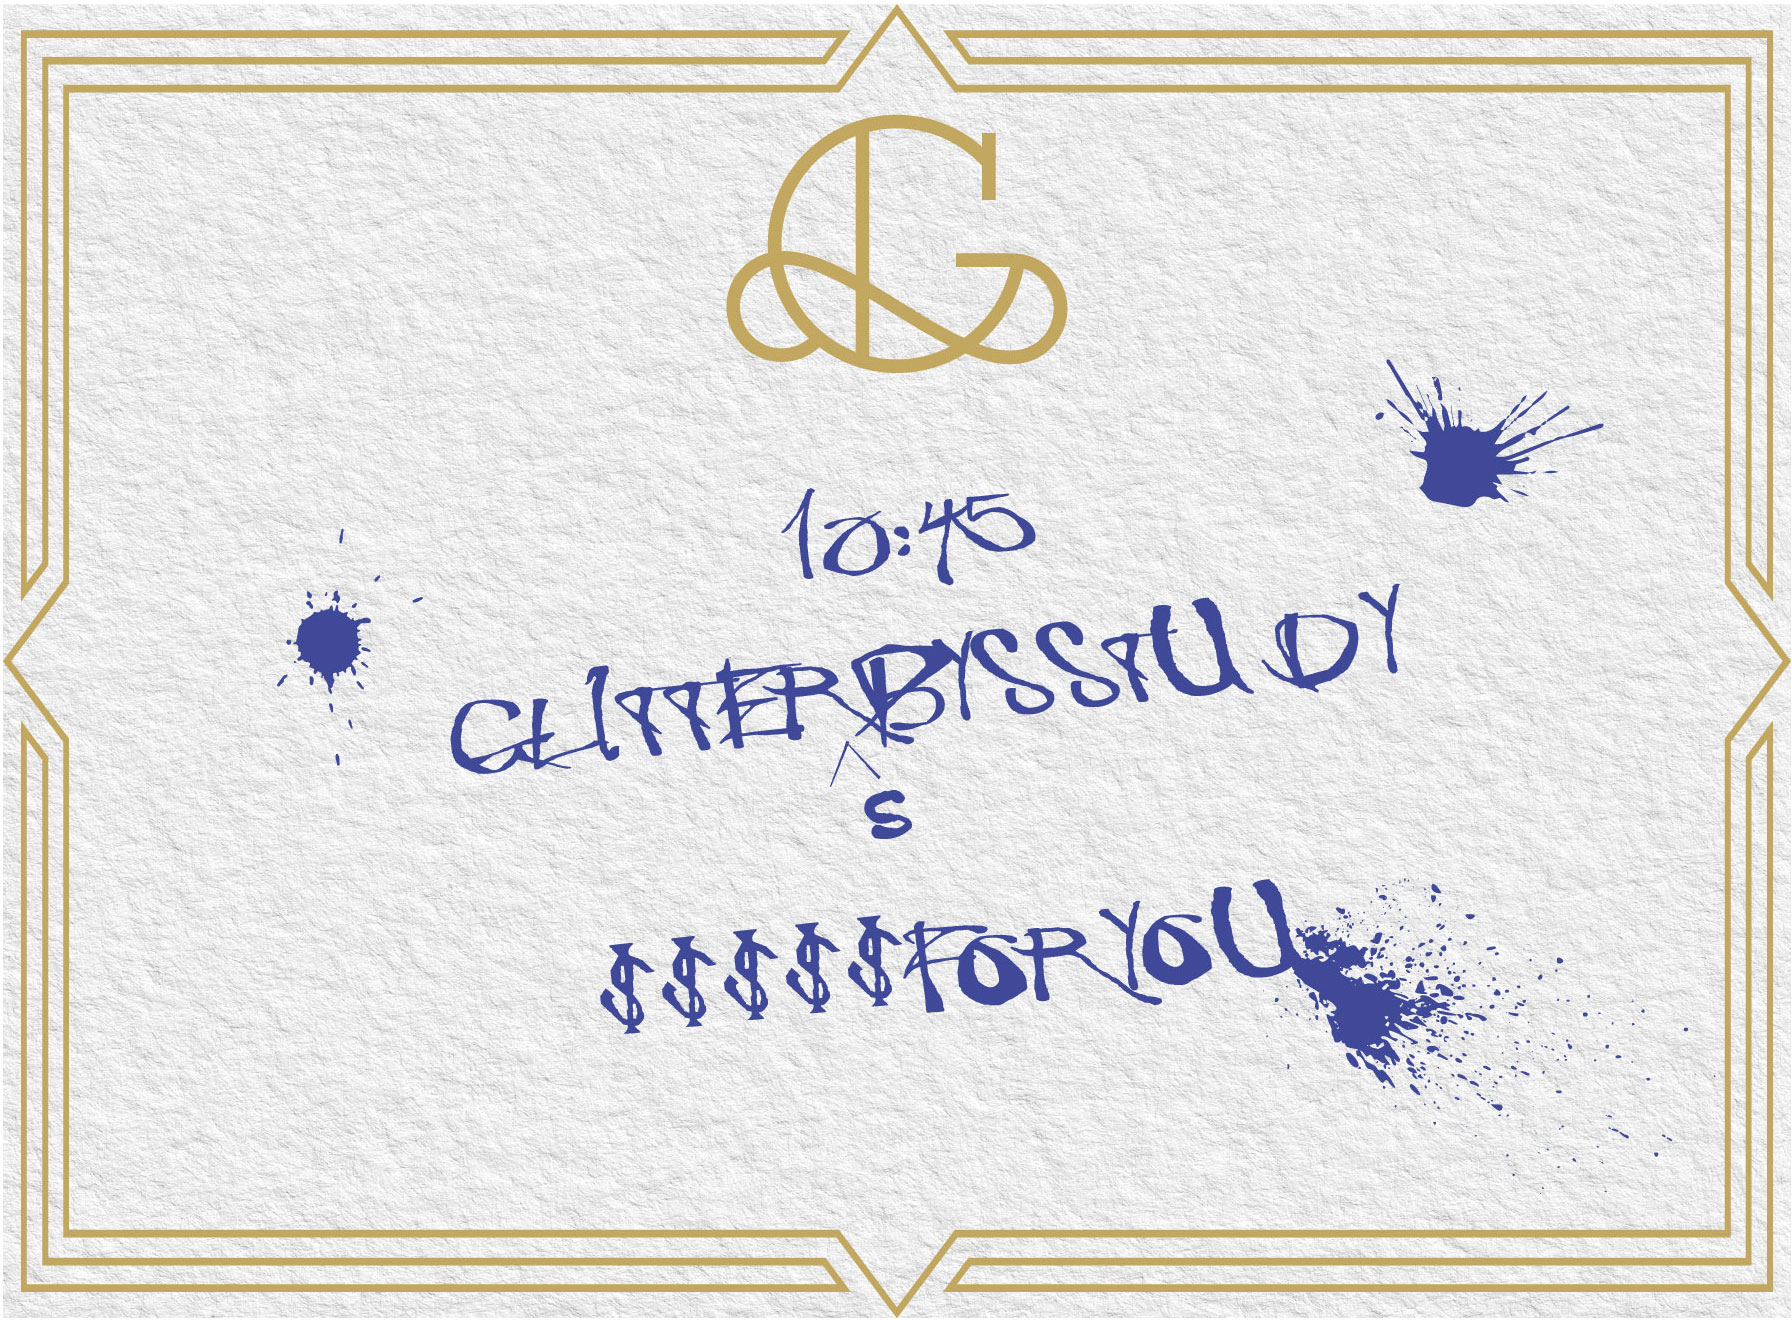 G
10:45
GLITTERBYSSTUDY
S
$$$$$FORYOU